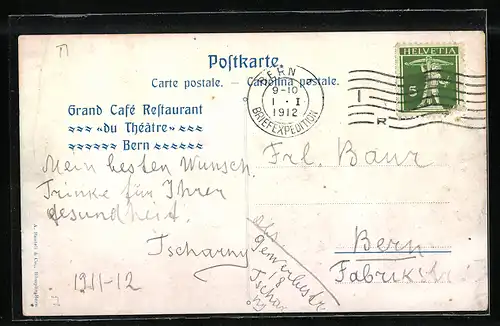 Postkarte.
Carte postale. — Cartolina postale.
Grand Café Restaurant
«du Théâtre»
Bern
BERN
9-10
1 · I
1912
BRIEFEXPEDITION
HELVETIA
5
R
Mein besten Wunsch.
Trinke für Ihrer
gesundheit.
Tscharny
1911-12
Frl. Baur
Bern
Fabrikstr
Gewerbestr
18